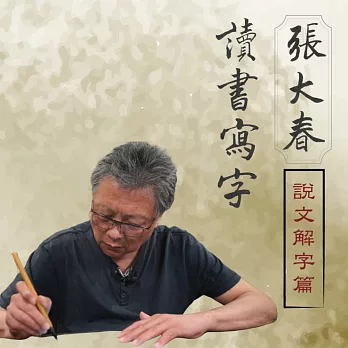 張大春
讀書寫字
說文解字篇